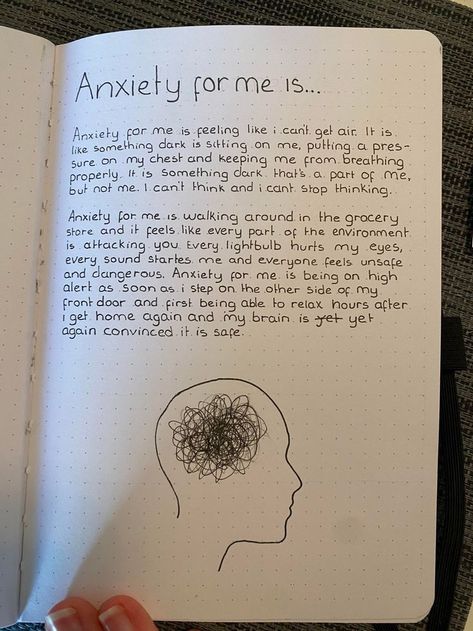 Anxiety for me is...
Anxiety for me is feeling like i can't get air. It is
like something dark is sitting on me, putting a pres-
sure on my chest and keeping me from breathing
properly. It is something dark that's a part of me,
but not me. I can't think and i cant stop thinking.
Anxiety for me is walking around in the grocery
store and it feels like every part of the environment
is attacking you. Every lightbulb hurts my eyes,
every sound startes me and everyone feels unsafe
and dangerous. Anxiety for me is being on high
alert as soon as i step on the other side of my
front door and first being able to relax hours after
i get home again and my brain is yet yet
again convinced it is safe.